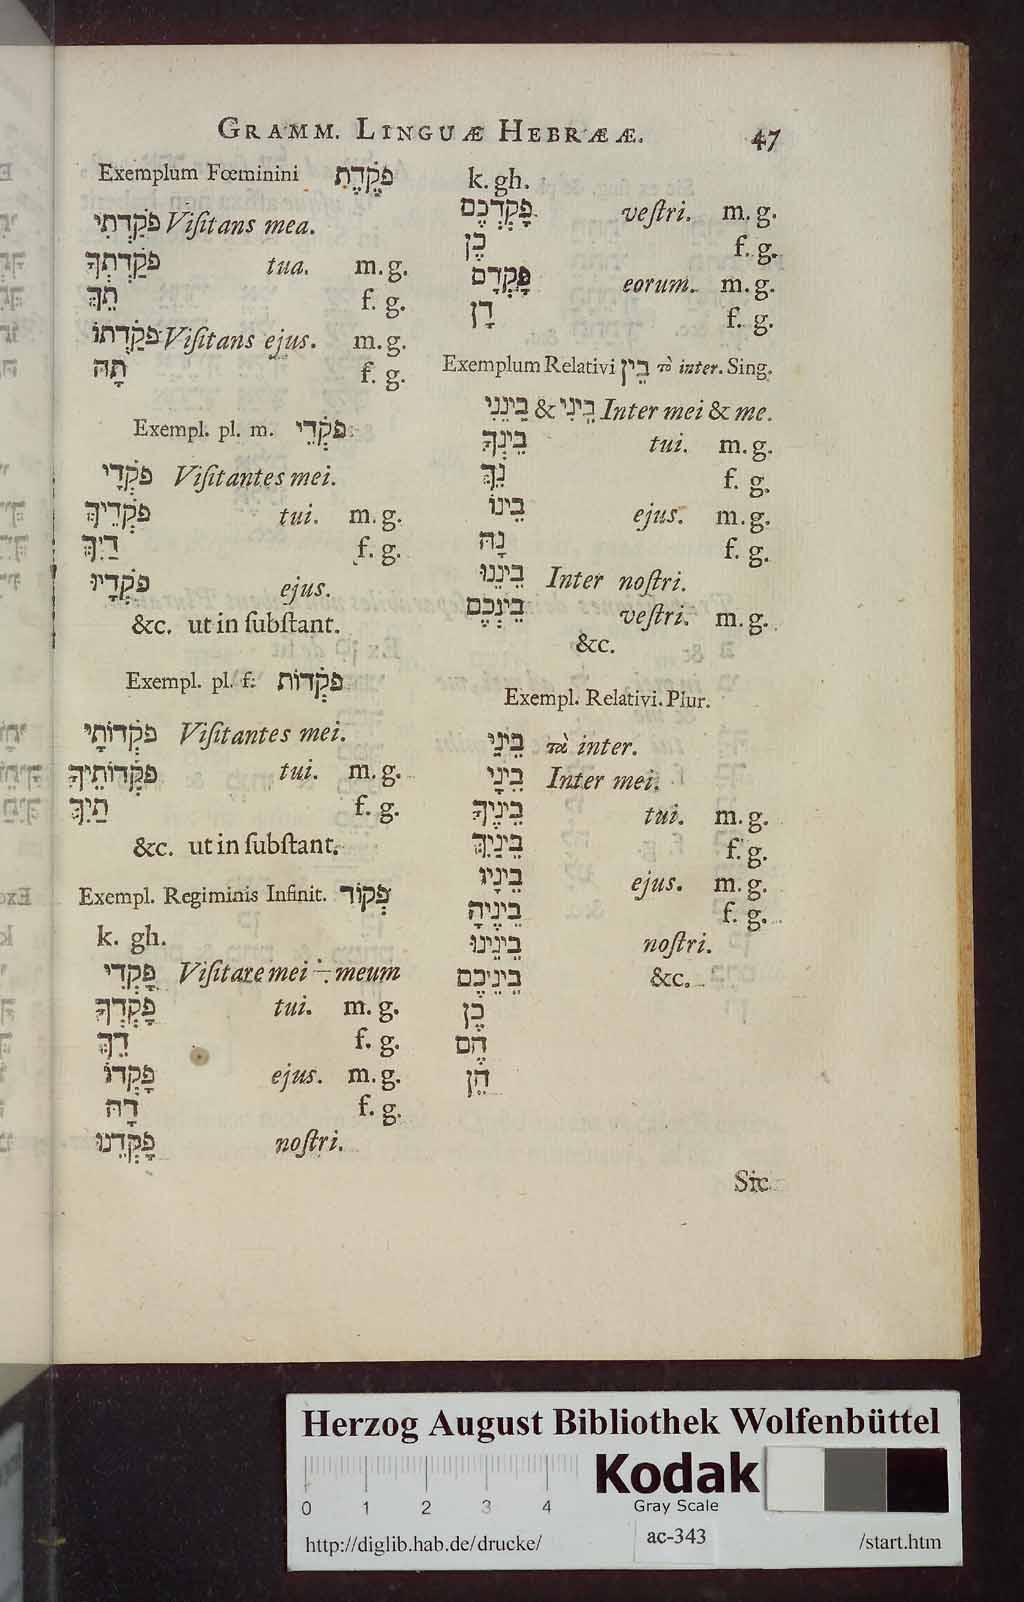 GRAMM. LINGUÆ HEBRÆÆ. 47
Exemplum Fœminini פֹּקֶדֶת
פֹּקַדְתִּי Viſitans mea.
פֹּקַדְתְּךָ tua. m. g.
תֵּךְ f. g.
פֹּקַדְתּוֹ Viſitans ejus. m. g.
תָּהּ f. g.
Exempl. pl. m. פֹּקְדֵי
פֹּקְדַי Viſitantes mei.
פֹּקְדֵיךָ tui. m. g.
דַיִךְ f. g.
פֹּקְדָיו ejus.
&c. ut in ſubſtant.
Exempl. pl. f. פֹּקְדוֹת
פֹּקְדוֹתָי Viſitantes mei.
פֹּקְדוֹתֵיךָ tui. m. g.
תַיִךְ f. g.
&c. ut in ſubſtant.
Exempl. Regiminis Infinit. פְּקוֹד
k. gh.
פָּקְדִי Viſitare mei ÷ meum
פָּקְדְךָ tui. m. g.
דֵךְ f. g.
פָּקְדוֹ ejus. m. g.
דָהּ f. g.
פָּקְדֵנוּ noſtri.
k. gh.
פָּקְדְכֶם veſtri. m. g.
כֶן f. g.
פָּקְדָם eorum. m. g.
דָן f. g.
Exemplum Relativi בֵּין τὸ inter. Sing.
בֵּינִי & בֵּינֵנִי Inter mei & me.
בֵּינְךָ tui. m. g.
נֵךְ f. g.
בֵּינוֹ ejus. m. g.
נָהּ f. g.
בֵּינֵנוּ Inter noſtri.
בֵּינְכֶם veſtri. m. g.
&c.
Exempl. Relativi. Plur.
בֵּינֵי τὰ inter.
בֵּינָי Inter mei.
בֵּינֶיךָ tui. m. g.
בֵּינַיִךְ f. g.
בֵּינָיו ejus. m. g.
בֵּינֶיהָ f. g.
בֵּינֵינוּ noſtri.
בֵּינֵיכֶם &c.
כֶן
הֶם
הֶן
Sic
Herzog August Bibliothek Wolfenbüttel
Kodak
0 1 2 3 4
Gray Scale
http://diglib.hab.de/drucke/ ac-343 /start.htm